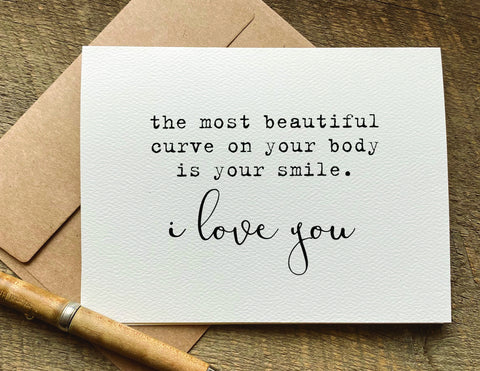 the most beautiful
curve on your body
is your smile.
i love you